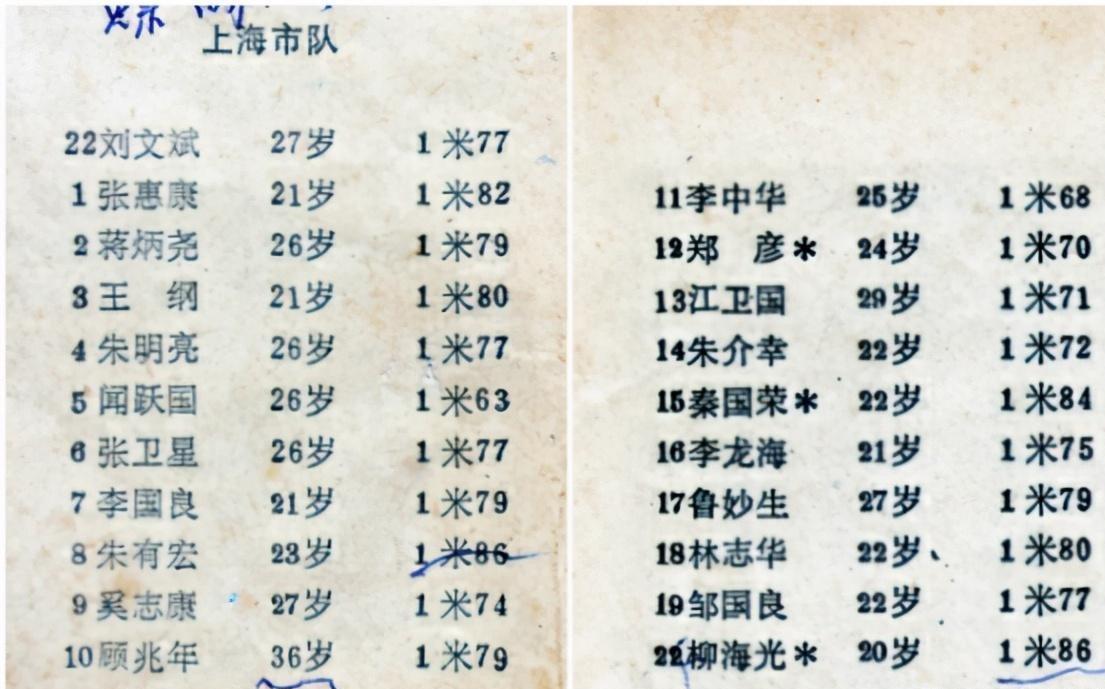 上海市队
22刘文斌 27岁 1米77
1 张惠康 21岁 1米82
2 蒋炳尧 26岁 1米79
3 王 纲 21岁 1米80
4 朱明亮 26岁 1米77
5 闻跃国 26岁 1米63
6 张卫星 26岁 1米77
7 李国良 21岁 1米79
8 朱有宏 23岁 1米86
9 奚志康 27岁 1米74
10顾兆年 36岁 1米79
11李中华 25岁 1米68
12郑 彦* 24岁 1米70
13江卫国 29岁 1米71
14朱介幸 22岁 1米72
15秦国荣* 22岁 1米84
16李龙海 21岁 1米75
17鲁妙生 27岁 1米79
18林志华 22岁 1米80
19邹国良 22岁 1米77
22柳海光* 20岁 1米86